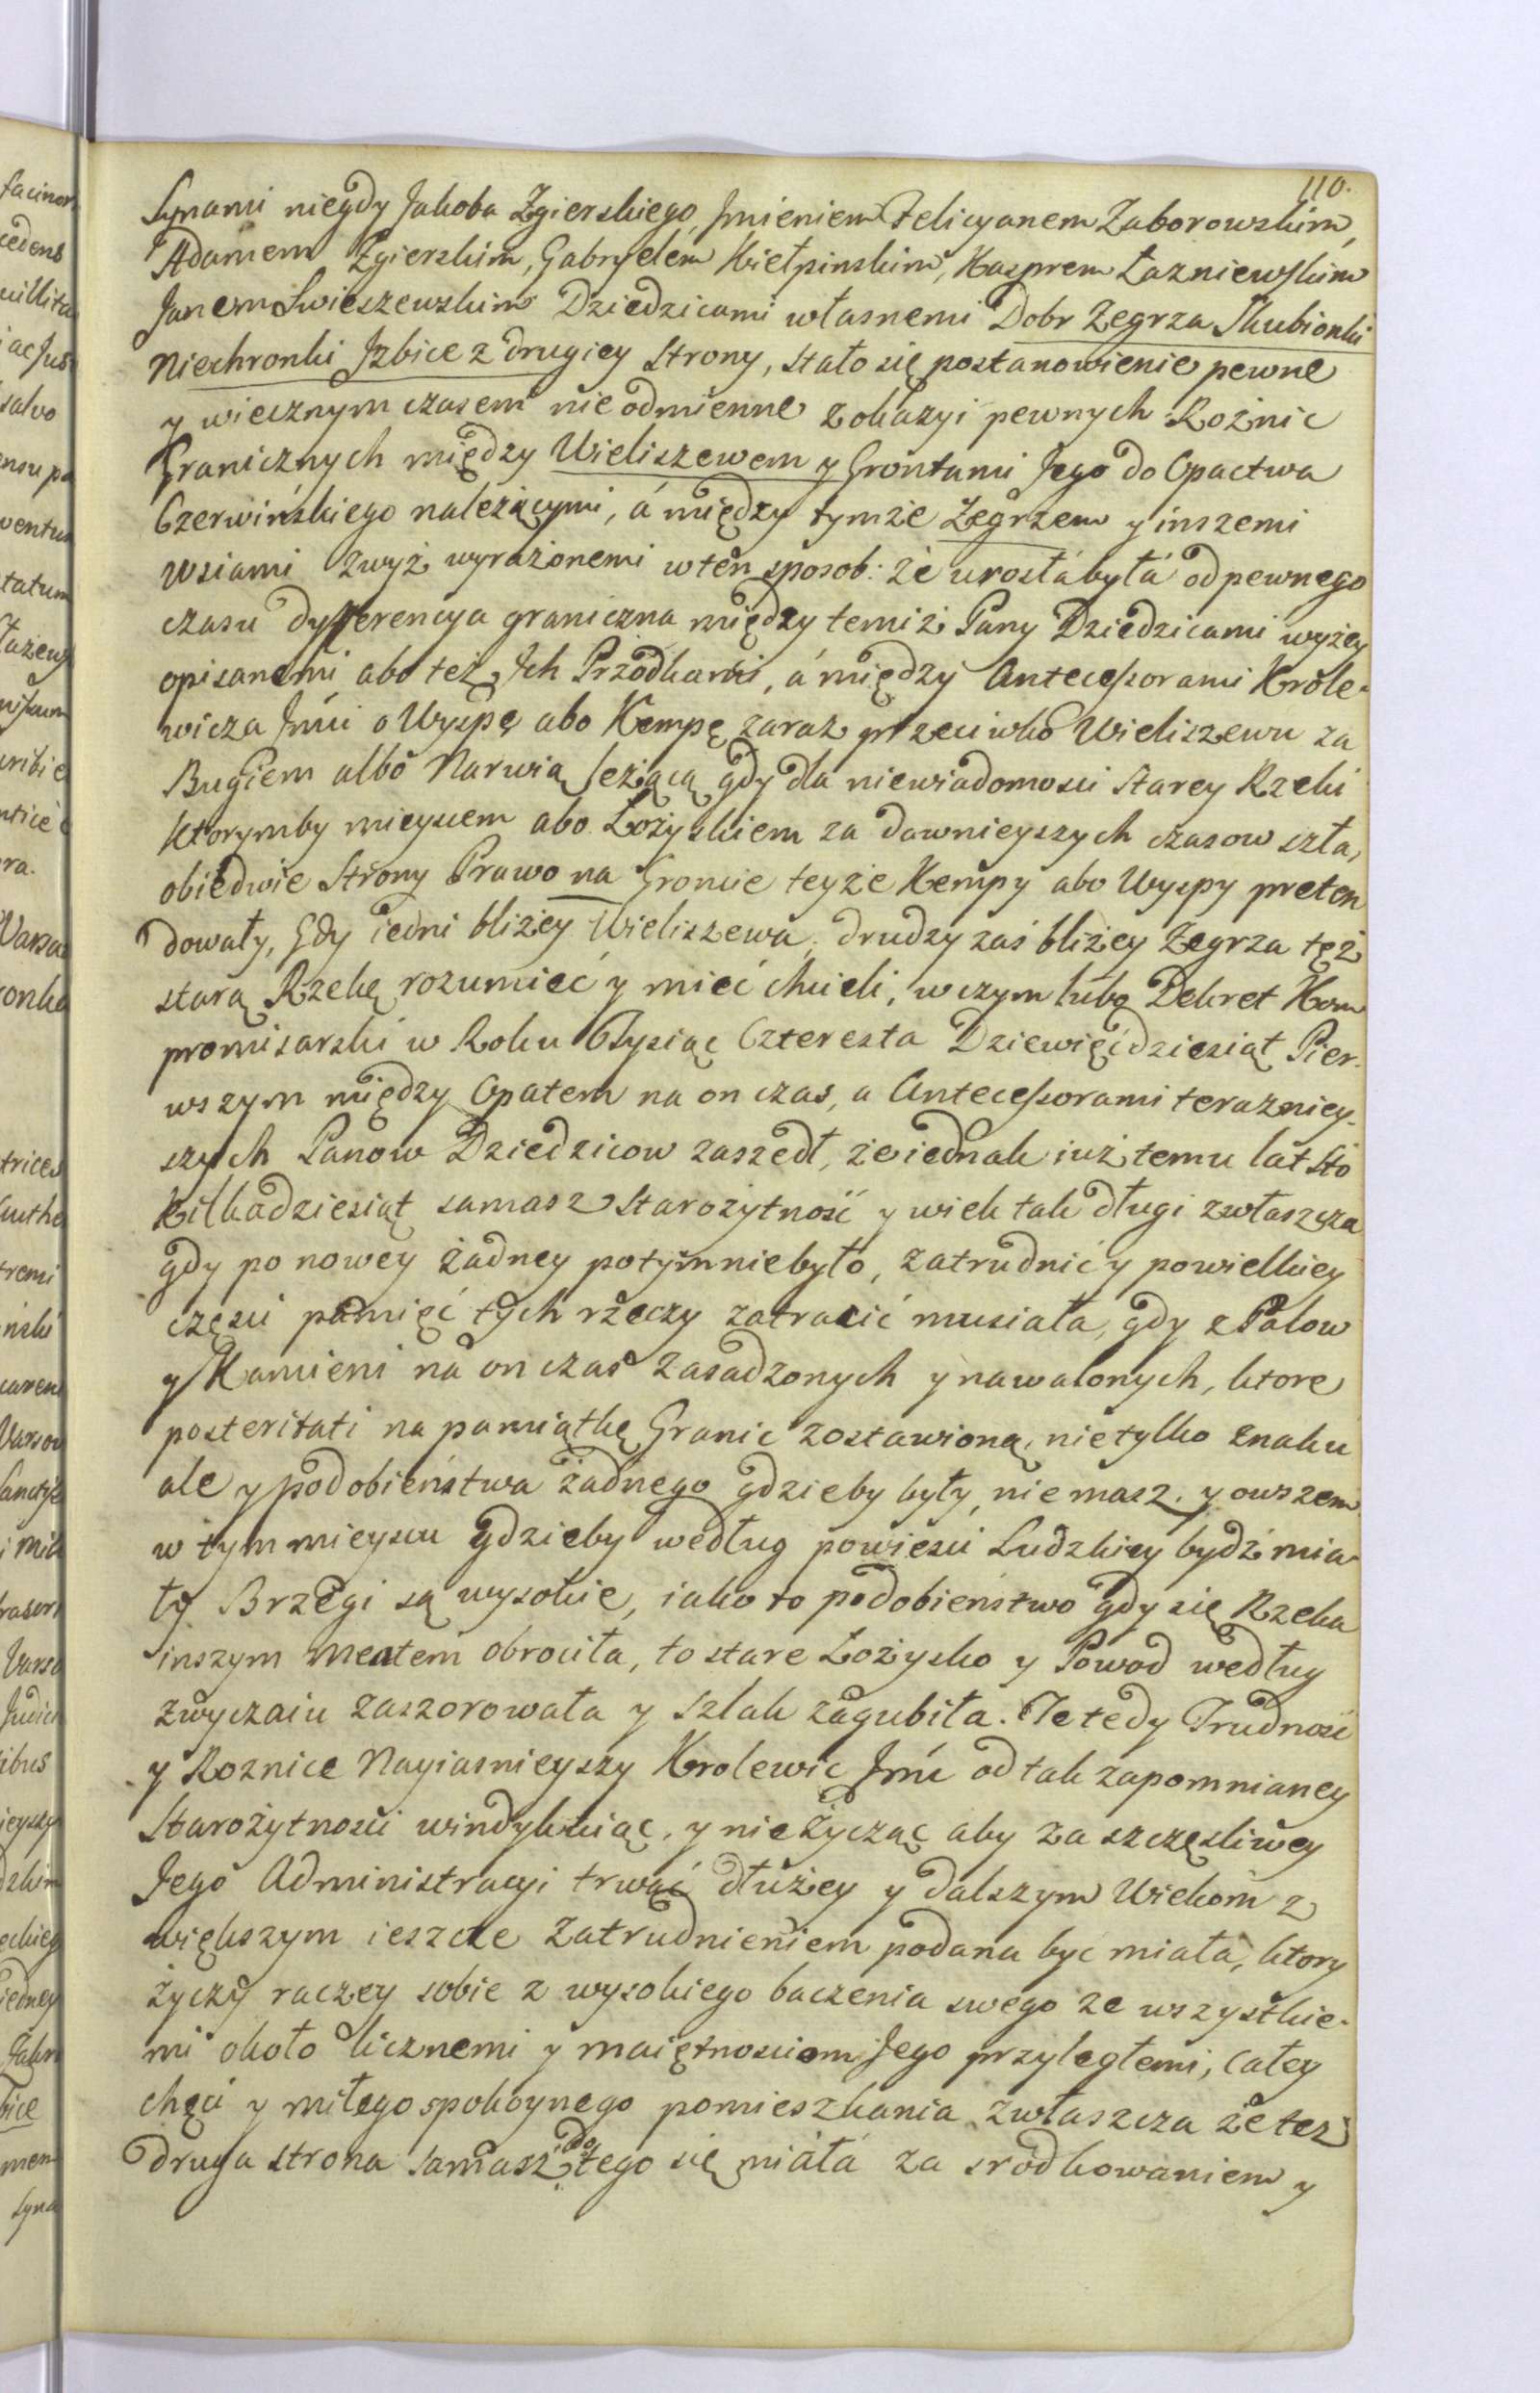 110.
Synami niegdy Jakoba Zgierskiego, Jmieniem Felicyanem Zaborowskim,
Adamem Zgierskim, Gabryelem Kiełpinskim, Kasprem Łazniewskim
Janem Swieszewskim Dziedzicami własnemi Dobr Zegrza Skubionki
Niechronki Jzbice z drugiey Strony, stało się postanowienie pewne
y wiecznym czasem nie odmienne z okazyi pewnych Rożnic
Granicznych między Wieliszewem y Grontami Jego do Opactwa
Czerwińskiego należącymi, á między tymże Zegrzem y inszemi
wsiami zwyż wyrażonemi w ten sposob: że urosłá byłá od pewnego
czasu dyfferencya graniczna między temiż Pany Dziedzicami wyżey
opisanemi abo też Jch Przodkami, á między Antecessorami Krole-
wicza Jmći o Wyspę abo Kempę zaraz przeciwko Wieliszewu za
Bugiem albo Narwią leżącą gdy dla niewiadomosci starey Rzeki
ktorymby mieyscem abo Łożyskiem za dawnieyszych czasow szła,
obiedwie Strony Prawo na Groncie teyże Kempy abo Wyspy preten
dowały, Gdy iedni bliżey Wieliszewa, drudzy zaś bliżey Zegrza też
starą Rzekę rozumieć y mieć chcieli, w czym lubo Dekret Kom
promisarski w Roku Tysiąc Czteresta Dziewięćdziesiąt Pier-
wszym między Opatem na on czas, a Antecessorami terazniey-
szych Panow Dziedzicow zaszedł, że iednak iuż temu lat sto
kilkadziesiąt samasz Starożytność y wiek tak długi zwłaszcza
gdy po nowey żadney potym niebyło, zatrudnić y po wielkiey
częsci pamięć tych rzeczy zatracić musiała, gdy z Palow
y Kamieni na on czas zasadzonych y nawalonych, ktore
posteritati na pamiątkę Granic zostawioną, nietylko znaku
ale y podobieństwa żadnego gdzieby były, nie masz. y owszem
w tym mieyscu gdzieby według powiesci Ludzkiey bydź mia-
ły Brzegi są wysokie, iako to podobieństwo gdy się Rzeka
inszym meatem obrociła, to stare Łożysko y Powod według
zwyczaiu zaszorowała y szlak zagubiła. Te tedy Trudność
y Roznice Nayiasnieyszy Krolewic Jmć od tak zapomnianey
Starożytnosci windykuiąc, y nie życząc aby za szczęsliwey
Jego Administracyi trwać dłużey y dalszym Wiekom z
większym ieszcze zatrudnieniem podana być miała, ktory
życzy raczey sobie z wysokiego baczenia swego ze wszystkie-
mi około licznemi y maiętnosciom Jego przyległemi, całey
chęci y miłego spokoynego pomieszkania zwłaszcza że też
druga strona samasz do tego się miáłá za srodkowaniem y